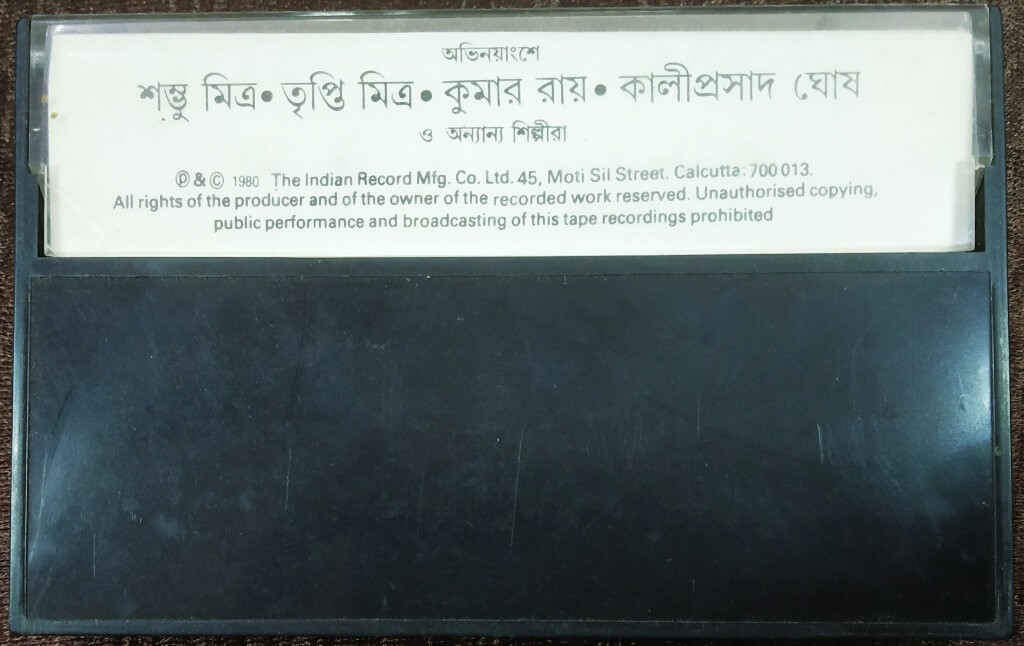 অভিনয়াংশে
শম্ভু মিত্র • তৃপ্তি মিত্র • কুমার রায় • কালীপ্রসাদ ঘোষ
ও অন্যান্য শিল্পীরা
Ⓟ & © 1980 The Indian Record Mfg. Co. Ltd. 45, Moti Sil Street. Calcutta: 700 013.
All rights of the producer and of the owner of the recorded work reserved. Unauthorised copying,
public performance and broadcasting of this tape recordings prohibited